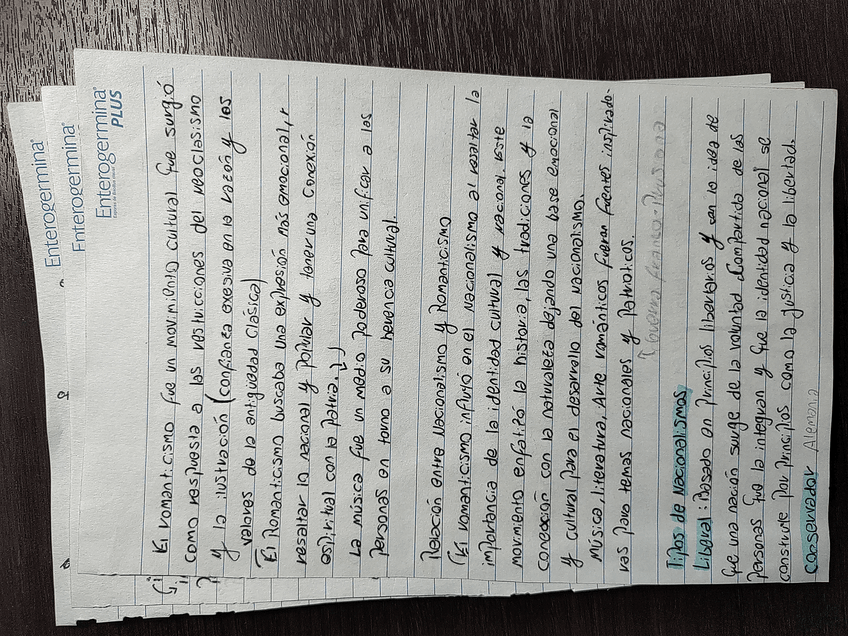 Enterogermina
Enterogermina
Enterogermina
PLUS
El romanticismo fue un movimiento cultural que surgió
como respuesta a las restricciones del neoclasismo
y la ilustración (confianza exesiva en la razón y los
valores de la antigüedad clásica)
El Romanticismo buscaba una expresión más emocional,
resaltar lo nacional y popular y tener una conexión
espiritual con la patria.
La música fue un medio poderoso para unificar a las
personas en torno a su herencia cultural.
Relación entre Nacionalismo y Romanticismo
El romanticismo influyó en el Nacionalismo al resaltar la
importancia de la identidad cultural y nacional. este
movimiento enfatizó la historia, las tradiciones y la
conección con la naturaleza dejando una base emocional
y cultural para el desarrollo del nacionalismo.
Música, literatura, Arte románticos fueron fuentes inspirado-
ras para temas nacionales y patrioticos.
guerra franco-Prusiana
Tipos de Nacionalismos
Liberal: Basado en principios libertarios y con la idea de
que una nación surge de la voluntad compartida de las
personas que la integran y que la identidad nacional se
construye por principios como la justicia y la libertad.
Conservador Alemania